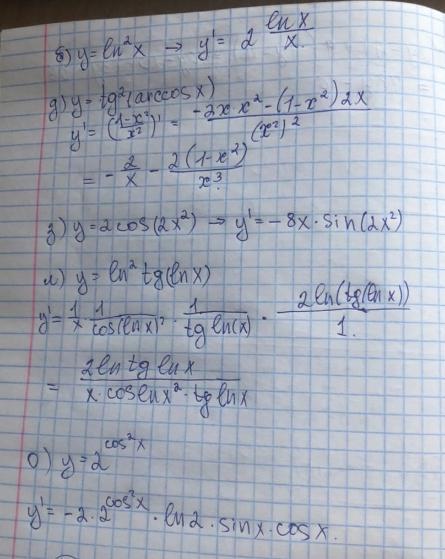 б) y = ln²x → y' = 2 lnx/x.
д) y = tg²(arccosx)
y' = ((1-x²)/x²)' = (-2x·x² - (1-x²)2x)/(x²)²
= -2/x - 2(1-x²)/x³
з) y = 2cos(2x²) → y' = -8x·sin(2x²)
л) y = ln²tg(lnx)
y' = 1/x · 1/cos(lnx)² · 1/tg ln(x) · 2ln(tg(lnx))/1.
= 2ln tg lnx/(x·coslnx²·tg lnx)
о) y = 2^cos²x
y' = -2·2^cos²x · ln2·sinx·cosx.